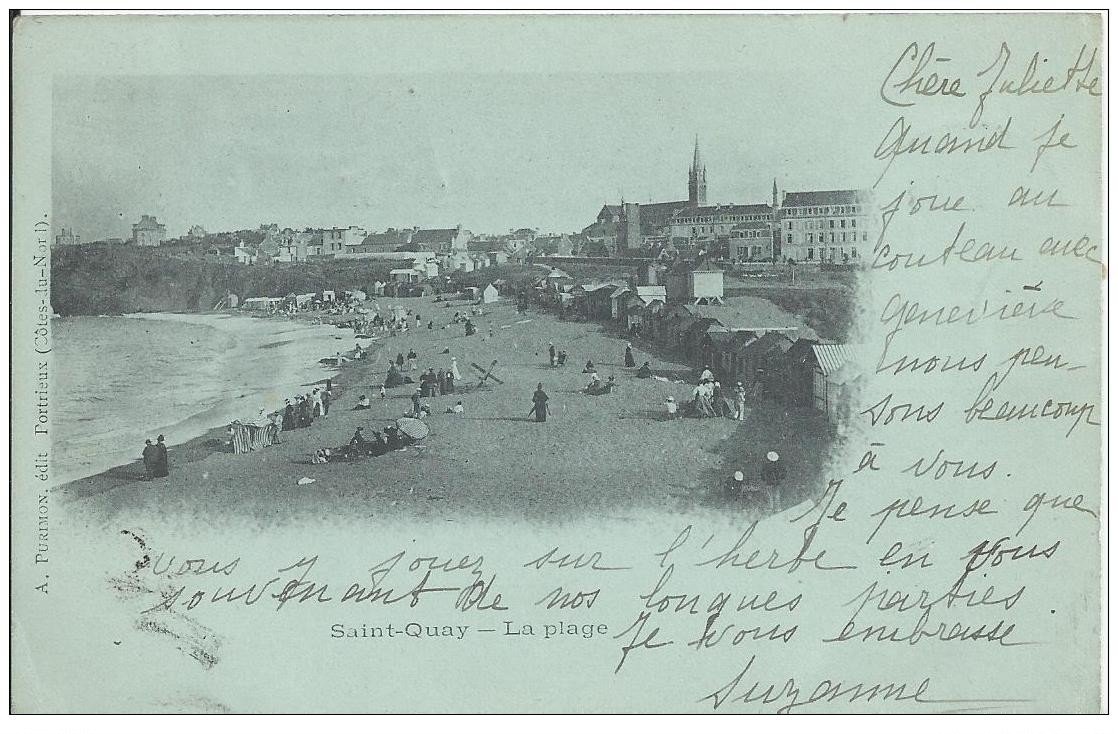 Chère Juliette
Quand je
joue au
couteau avec
Geneviève
nous pen-
sons beaucoup
à vous.
Je pense que
vous y jouez sur l'herbe en vous
souvenant de nos longues parties.
Je vous embrasse
Suzanne
Saint-Quay — La plage
A. PURIMON, édit Portrieux (Côtes-du-Nord).